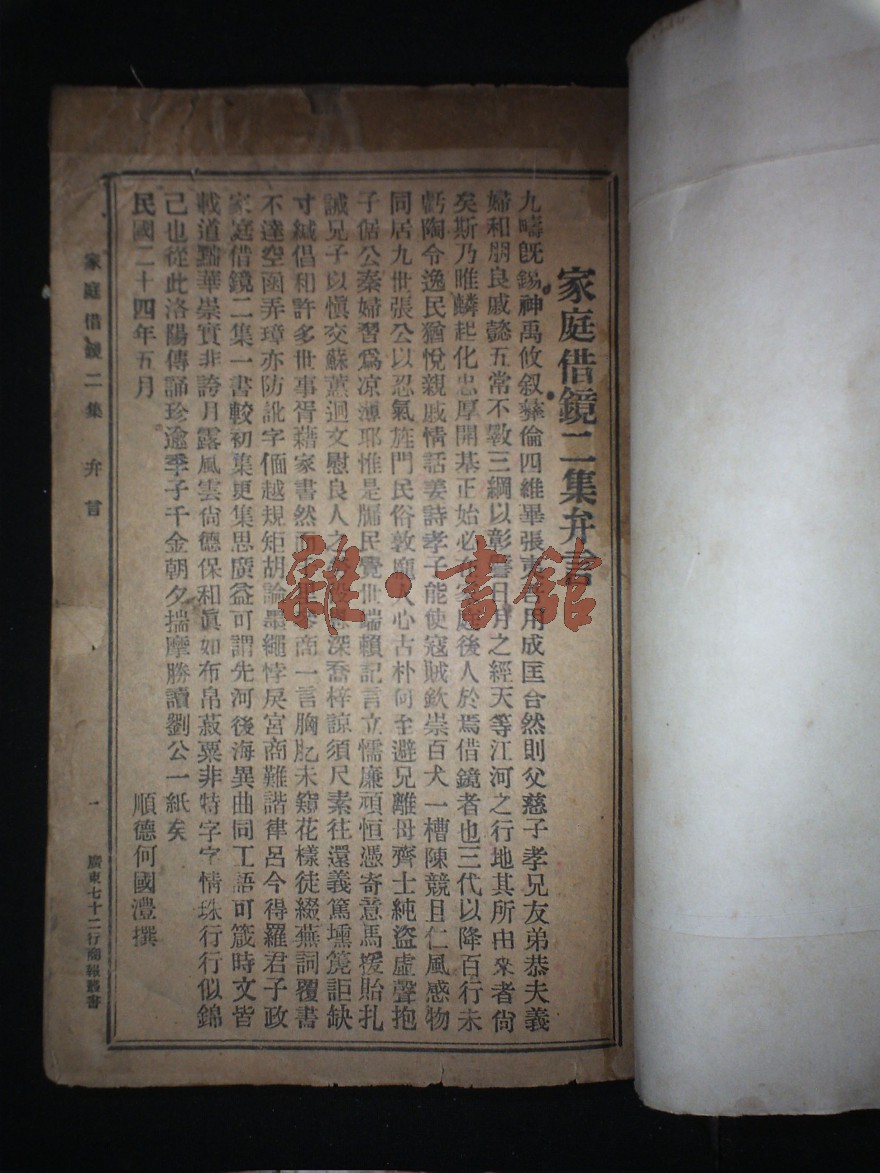 家庭借鏡二集弁言
九疇旣錫神禹攸叙彝倫四維畢張用成匡合然則父慈子孝兄友弟恭夫義
婦和朋良戚懿五常不斁三綱以彰日月之經天等江河之行地其所由來者尙
矣斯乃唯麟起化忠厚開基正始必家庭後人於焉借鏡者也三代以降百行未
虧陶令逸民猶悅親戚情話姜詩孝子能使寇賊欽崇百犬一槽陳競且仁風感物
同居九世張公以忍氣旌門民俗敦龐人心古朴何至避兄離母齊士純盜虛聲抱
子倨公秦婦習爲凉薄耶惟是牖民覺世端賴記言立懦廉頑恒憑寄意馬援貽扎
誡兄子以愼交蘇蕙迴文慰良人之深喬梓諒須尺素往還義篤壎箎詎缺
寸緘倡和許多世事胥藉家書然而商一言胸肊未窺花樣徒綴蕪詞覆書
不達空函弄璋亦防訛字偭越規矩胡論墨繩悖戾宮商難諧律呂今得羅君子政
家庭借鏡二集一書較初集更集思廣益可謂先河後海異曲同工語可箴時文皆
載道黜華崇實非誇月露風雲尙德保和眞如布帛菽粟非特字字情珠行行似錦
己也從此洛陽傳誦珍逾季子千金朝夕揣摩勝讀劉公一紙矣
民國二十四年五月
順德何國澧撰
家庭借鏡二集 弁言
一
廣東七十二行商報叢書
雜·書館